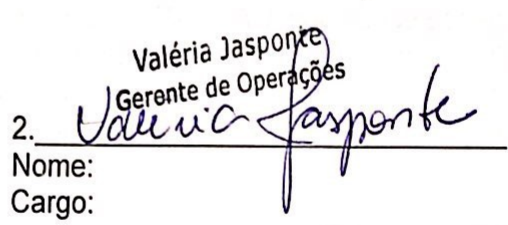 Valéria Jasponte
Gerente de Operações
2. Valéria Jasponte
Nome:
Cargo: